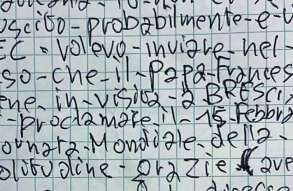 uscito-probabilmente-e-v
EC=Volevo-inviare-nel-
so-che-il-Papa-Frances
ene-in-visita-a BRESCI
-proclamare-il-15 Febbra
ornata-Mondiale-della-
olitudine-grazie